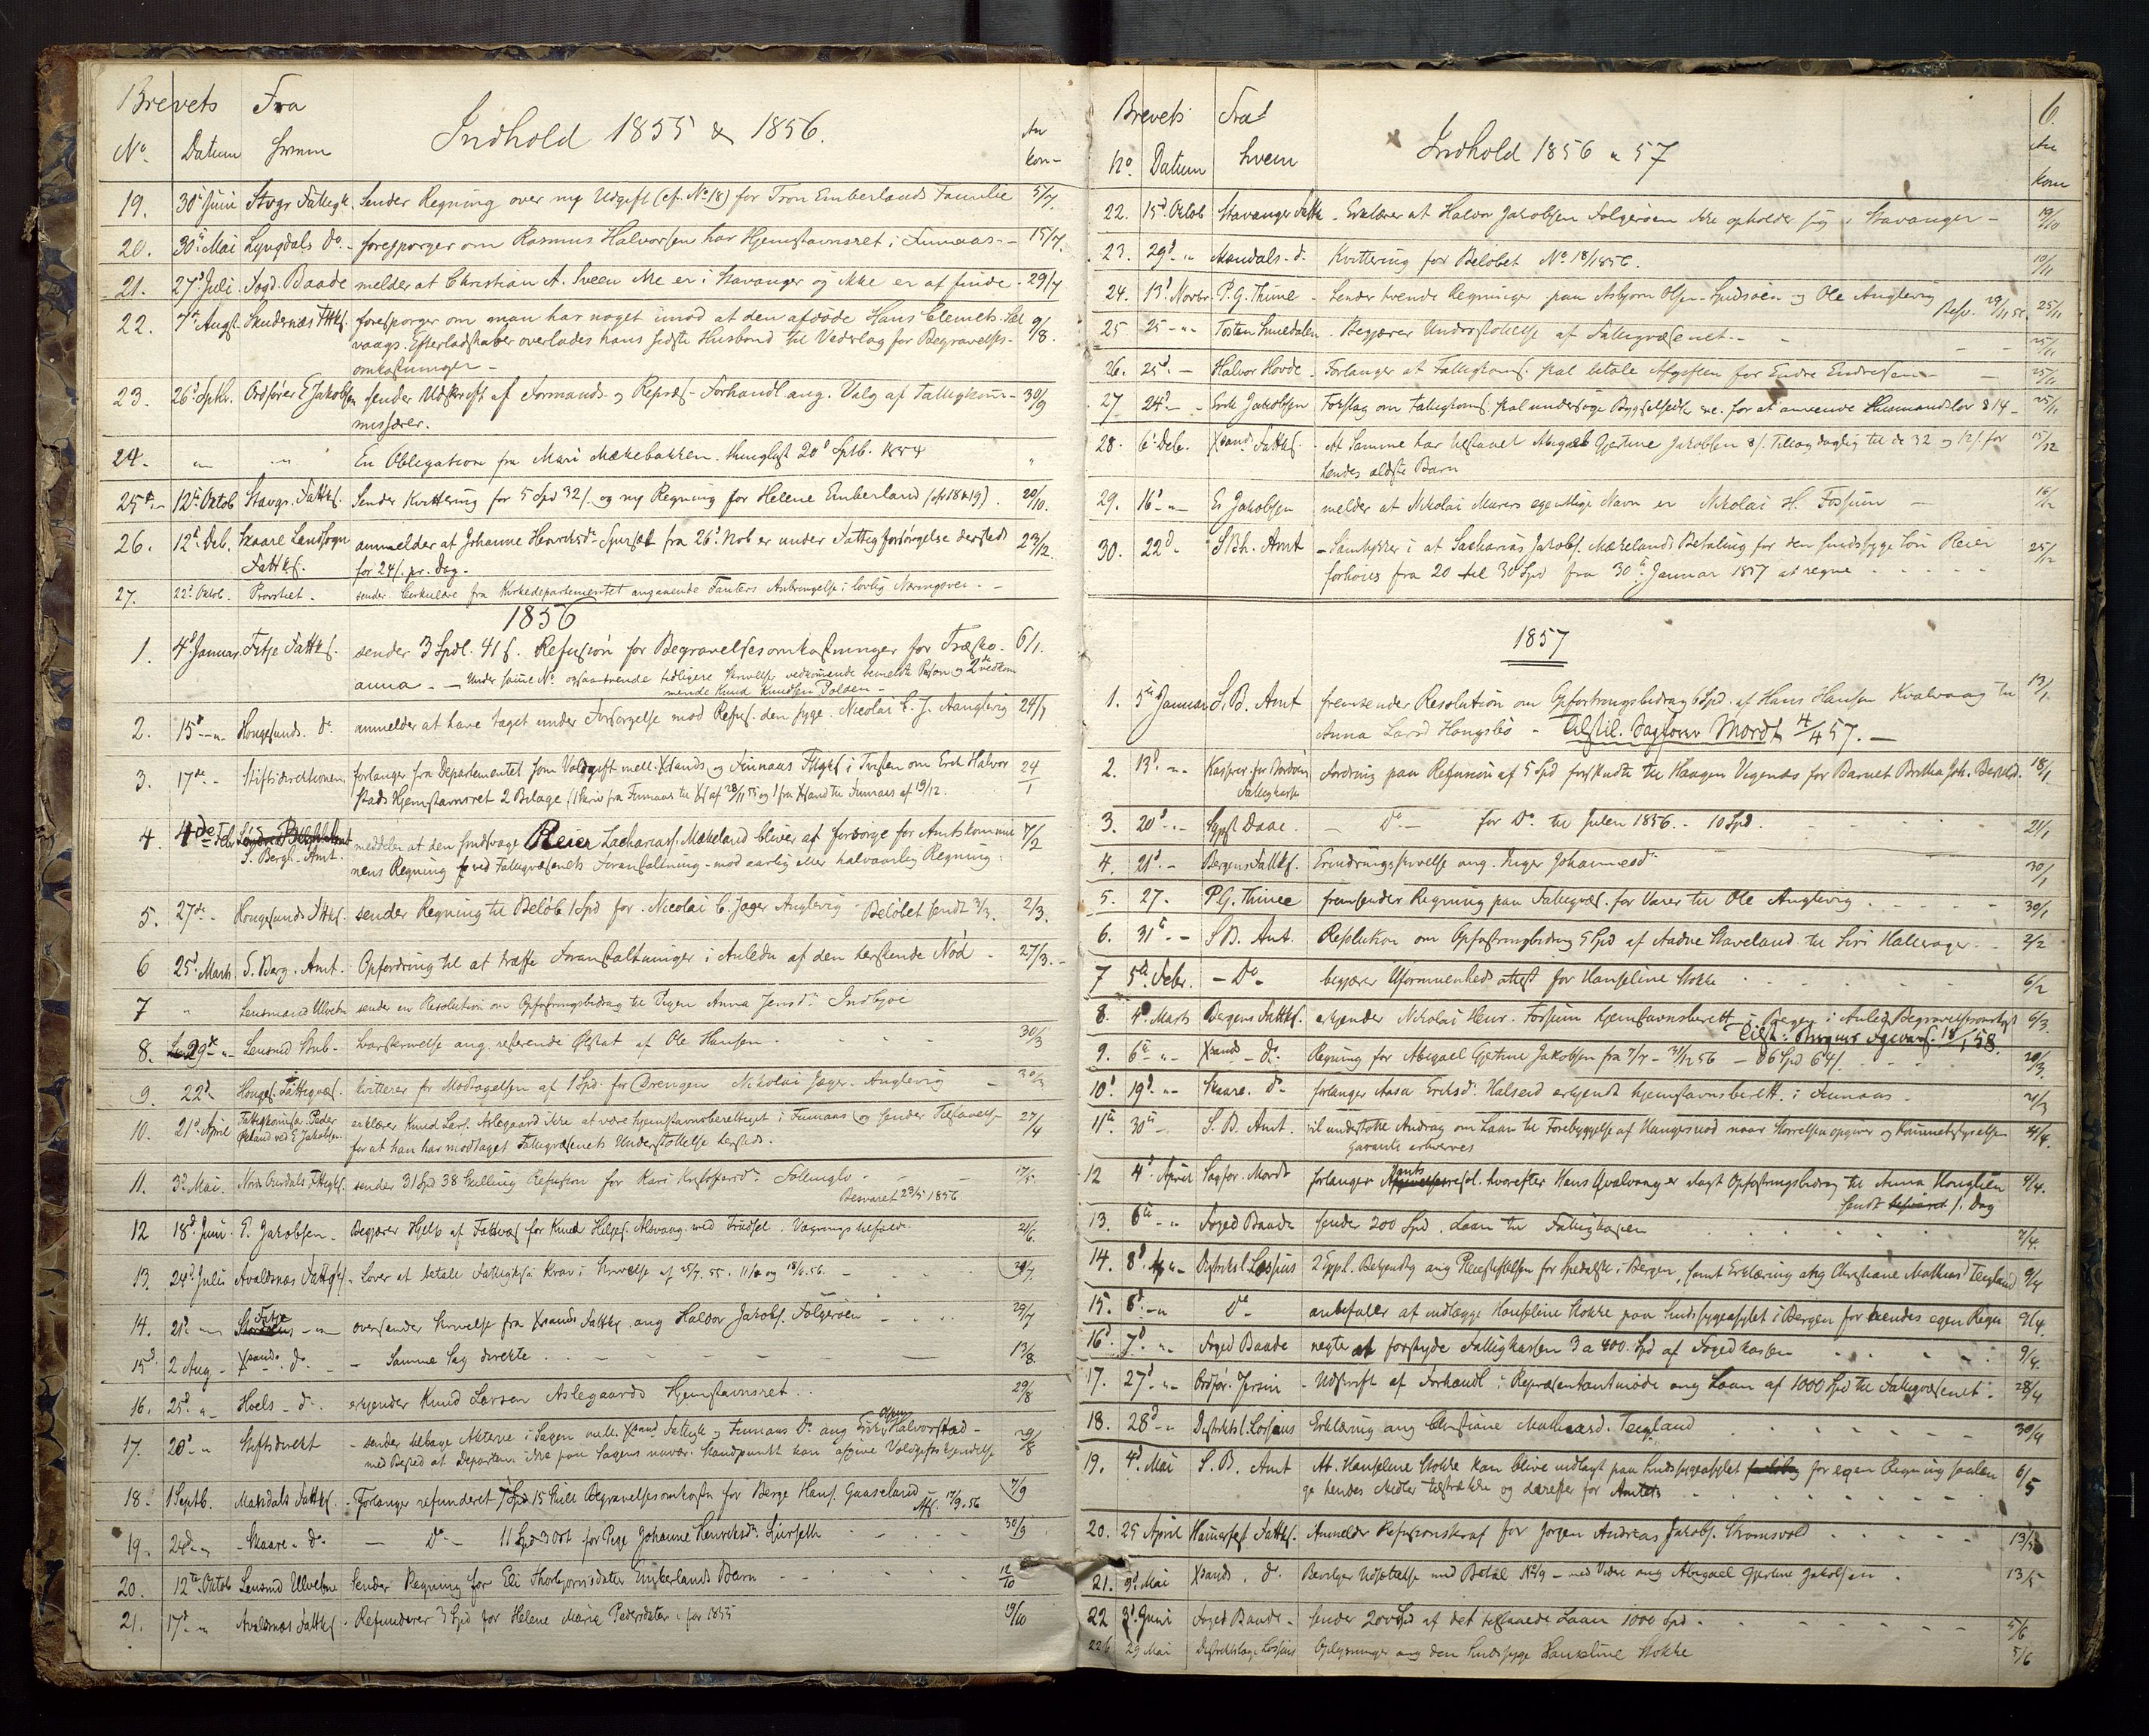 Brevets Fra
Indhold 1855 & 1856.
An
No. Datum hvem kom-
19. 30te Juni Stvgr Fattigk. Sender Regning over ny Udgift (cf. No 18) for Tron Emberlands Familie 5/7.
20. 30te Mai Lyngdals do. - forespørger om Rasmus Halvorsen har Hjemstavnsret i Finnaas - 15/7.
21. 27d Juli. Fogd. Baade melder at Christian A. Sveen ikke er i Stavanger og ikke er at finde. 29/7
22. 7de Augst. Skudesnæs Fttks. forespørger om man har noget imod at den afdøde Hans Clemets. Sæl 9/8.
vaags Efterladskaber overlades hans sidste Husbond til Vederlag for Begravelses-
omkostninger -
23. 26d Sptbr. Ordfører E Jakobsen sender Udskrift af Formands- og Repræs- Forhandl ang. Valg af Fattigkom- 30/9
missærer.
24. " " En Obligation fra Mari Mækebakken. thinglyst 20d Sptb. 1854 "
25d 12te Oktob Stavgs. Fattks. Sender Kvittering for 5 Spd 32 s. og ny Regning for Helene Emberland (cf 18 & 19). 20/10.
26. 12te Deb. Skaare Landsogn anmelder at Johanne Henriksdr fra 26d Nob er under Fattigforsørgelse dersteds 23/12.
Fattks. for 24 s. pr. Dag.
27. 22d Oktob. Provstiet. sender Cirkulære fra Kirkedepartementet angaaende Fanters Anbringelse i lovlig Næringsvei. -
1856
1. 4d Januar. Fitje Fattks. sender 3 Spdl. 41 s. Refusion for Begravelsesomkostninger for Træsko- 6/1.
anna - - Under samme No. ogsaa tvende tidligere Skrivelser vedkommende bemeldte Person og 2de vedkom
mende Knud Knudsen Polden -
2. 15d " Haugesunds do. anmelder at have taget under Forsørgelse mod Refus. den syge Nicolai C. J. Aanglevig 24/1
3. 17de - Stiftsdirektionen forlanger fra Departementet som Voldgift mell. Xsands og Finnaas Fttgks i Tvisten om Erik Halvor 24/1
stads Hjemstavnsret 2 Bilage (1 Skriv fra Finnaas til Xs af 28/11 55 og 1 fra Xsand til Finnaas af 19/12.
4. 4de Febr S. Bergh. Amt. meddeler at den sindsvage Reier Zachariass. Mækeland bliver at forsørge for Amtskommu 7/2
nens Regning ved Fattigvæsenets Foranstaltning - mod aarlig eller halvaarlig Regning.
5. 27de - Haugesunds Fttks. sender Regning til Beløb 1 Spd for Nicolai C. Jæger Anglevig - Beløbet sendt 3/3. 2/3.
6 25d Marts S. Berg. Amt. Opfordring til at træffe Foranstaltninger i Anledn af den herskende Nød - 27/3.
7 " Lensmand Ulveen sender en Resolution om Opfostringsbidrag til Pigen Anna Jensdr Indbjoe
8. 29de " Lensmd Bub- Svarskrivelse ang. resterende af Ole Hansen - 30/3
9. 29d Hauges. Fattigvæs. kvitterer for Modtagelsen af 1 Spd. for Drengen Nikolai Jæger Anglevig - 30/3
10. 21d April Fattigkommissær Peder erklærer Knud Lars. Aslegaard ikke at være hjemstavnsberettiget i Finnaas og sender Tilstaaelse 27/4
Økland ved E Jakobsen for at han har modtaget Fattigvæsenets Understøttelse dersteds.
11. 3d Mai. Nordr Aurdals Fttgks. sender 31 Spd 38 Skilling Refusion for Kari Kristofersdr - 17/5.
Besvaret 23/5 1856
12 18d Juni. E. Jakobsen. Begjærer Hjelp af Fattvæs for Knud Helges. Alsvaag med Trudsel. 21/6.
13. 24d Juli Avaldsnæs Fattgks - Lover at betale Fattigks's Krav i Skrivelse af 25/7. 55. 11/2 og 18/6. 56. - 29/7
14. 21d " Fitje " oversender Skrivelse fra Xsands Fattks. ang Haldor Jakobs. Folgerøen 29/7
15d 2 Aug - Xsands do. - Samme Sag direkte - 13/8.
16. 25d " Hoels - do. erkjender Knud Larsen Aslegaards Hjemstavnsret. 29/8
17. 20d " Stiftsdirekt - sender tilbage Akterne i Sagen mell. Xsand Fattigk og Finnaas do ang Erik Olsen Halvorstad - 29/8
med Besked at Departem. ikke paa Sagens nuvær. Standpunkt kan afgive Voldgiftskjendelse
18. 1 Septb. Mandals Fattks. - Forlanger refunderet 7 Spd 15 Skill Begravelsesomkostn for Berge Hans. Gaaseland 7/9
Afs. 17/9. 56
19. 24d " - Skaare - do - - do - 11 Spd 3 Ort for Pige Johanne Henriksdr 30/9
20. 12te Oktob Lensmd Ulveen Sender Regning for Eli Thorbjørnsdatter Emberlands Barn - 12/10
21. 17d " Avaldsnæs Fattks - Refunderer 3 Spd for Helene Marie Pedersdatter for 1855 19/10
6.
Brevets Fra
Indhold 1856 & 57
No. Datum hvem An kom
22. 15d Oktob Stavanger Fattk - Erklærer at Haldor Jakobsen Folgerøen ikke opholder sig i Stavanger - 19/10
23. 29d " Mandals - do Kvittering for Beløbet No 18/1856. 10/11
24. 13d Novbr. P. G. Thime - Sender tvende Regninger paa Asbjørn Olsen Spidsøen og Ole Anglevig 25/11
Besv. 29/11 56.
25 25 - " Tosten Smedalen - Begjærer Understøttelse af Fattigvæsenet - 25/11
26. 25d - Halvor Hovde - Forlanger at Fattigkoms. skal betale Afgiften for Endre Endresen - 25/11
27 24d - Erik Jakobsen Forslag om Fattigkoms. skal undersøge Bygselsedl for at anvende Husmandslov § 14 - 25/11
28. 6d Debr. Xsands Fattks. - At Samme har tilstaaet Abigael Gjertine Jakobsen 8 s. Tillæg daglig til de 32 og 12 s. for 15/12
hendes ældste Barn
29. 16d " Er Jakobsen melder at Nikolai Murers egentlige Navn er Nikolai H. Fossum - 16/12
30. 22d - S. Bh. Amt - Samtykker i at Sacharias Jakobs. Mækelands Betaling for den sindssyge Søn Reier 25/12
forhøies fra 20 til 30 Spd fra 30te Januar 1857 at regne
1857
1. 5te Januar S. B. Amt fremsender Resolution om Opfostringsbidrag 6 Spd. af Hans Hansen Kvalvaag til 13/1
Anna Larsd Haugsbø - Tilstil. Sagfører Mordt 4/4 57. -
2. 13d " Kasserer for Nordøens Fordring paa Refusion af 5 Spd forskudte til Haagen Vigenæs for Barnet Brithe Joh. 18/1
Fattigkasse
3. 20d " Sgpst Daae. - do - for do. til Julen 1856. - 10 Spd. 21/1
4. 21d - Bergens Fattks. Erindringsskrivelse ang. Inger Johannesdr 30/1
5. 27. PG. Thime fremsender Regning paa Fattigvæs. for Varer til Ole Anglevig 30/1
6. 31te - S B. Amt. Resolution om Opfostringsbidrag 5 Spd af Aadne Staveland til Siri Hallerager - 2/2
7 5te Febr. - do - begjærer Uformuenhedsattest for Hanseline Stokke 6/2
8. 4d Marts Bergens Fattks. erkjender Nikolai Henr. Fossum hjemstavnsberett i Bergen i Anledn Begravelsesomkost 6/3.
9. 6te " Xsands - do. Regning for Abigael Gjertine Jakobsen fra 7/7 - 31/12 56 - 36 Spd 64 s. 20/3.
10d 19d " Skaare. do. forlanger Aasa Eriksdr. Halseid erkjendt hjemstavnsberett. i Finnaas - 21/3
11te 30te - S. B. Amt. vil understøtte Andrag om Laan til Forebyggelse af Hungersnød naar Størrelsen opgives og Kommunebestyrelsens 4/4.
Garantie erhverves
12 4d April Sagfør. Mordt forlanger Amtsresol. hvorefter Hans Qvalvaag er ilagt Opfostringsbidrag til Anna Hougslien 4/4.
sendt s. Dag
13. 6te " Foged Baade sender 200 Spd. Laan til Fattigkassen 7/4.
14. 8d " Distriktsl. Lossius 2 Expl. Bekjendtg ang Pleiestiftelsen for Spedalske i Bergen, samt Erklæring ang Christiane Mathiasd Tegland 9/4
15. 8d " do anbefaler at indlægge Hanseline Stokke paa Sindssygeasylet i Bergen for hendes egen Regn 9/4.
16d 7d " Foged Baade negte at forskyde Fattigkassen 3 a 400 Spd af Fogedkassen 9/4.
17. 27d " Ordfør. - Udskrift af Forhandl i Repræsentantmøde ang Laan af 1000 Spd til Fattigvæsenet - 28/4
18. 28d " Distriktsl. Lossius Erklæring ang Christiane Mathiasd. Tegland 30/4
19. 4d Mai S. B. Amt At Hanseline Stokke kan blive indlagt paa Sindssygeasylet for egen Regning saalen 6/5
ge hendes Midler tilstrække og derefter for Amtets
20. 25 April Hammerfest Fattks. Anmelder Refusionskrav for Jørgen Andreas Jakobs. Strømsvold 13/5
21. 9d Mai Xsands. do. Bevilger Udsættelse med Betal No 9/9 - med Videre ang Abigael Gjertine Jakobsen 13/5
22 3d Juni Foged Baade - sender 200 Spd af det tilstaaede Laan 1000 Spd - 5/6
22b 29 Mai Distriktslæge Lossius Oplysninger ang den sindssyge Hanseline Stokke 5/6